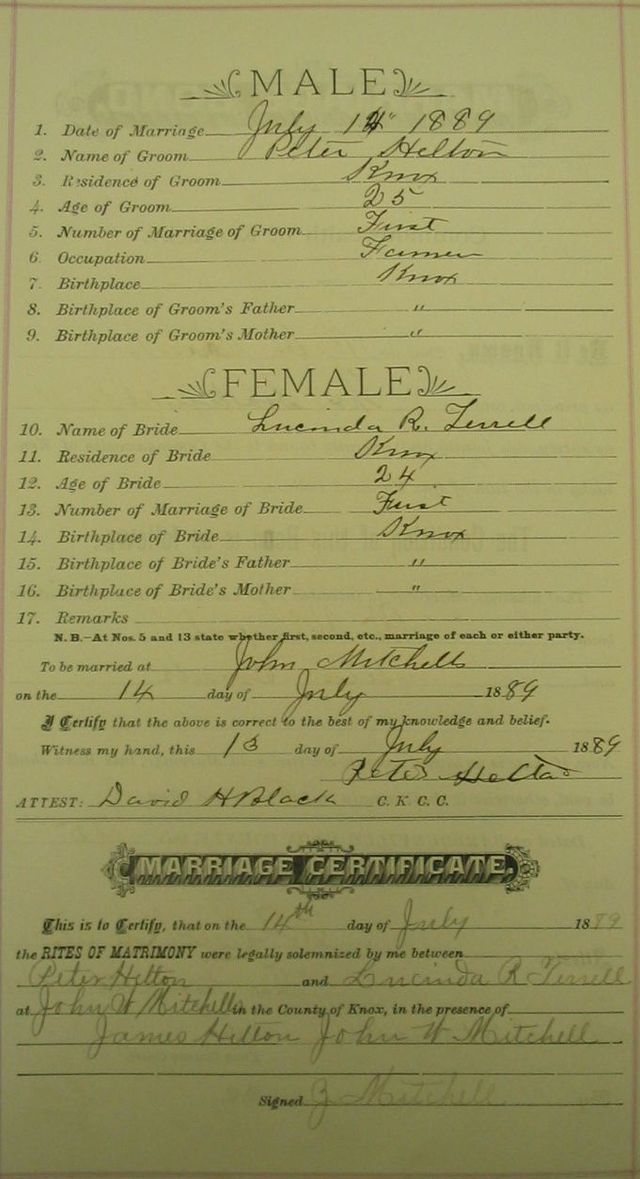 MALE
1. Date of Marriage July 14" 1889
2. Name of Groom Peter Helton
3. Residence of Groom Knox
4. Age of Groom 25
5. Number of Marriage of Groom First
6. Occupation Farmer
7. Birthplace Knox
8. Birthplace of Groom's Father "
9. Birthplace of Groom's Mother "
FEMALE
10. Name of Bride Lucinda R. Terrell
11. Residence of Bride Knox
12. Age of Bride 24
13. Number of Marriage of Bride First
14. Birthplace of Bride Knox
15. Birthplace of Bride's Father "
16. Birthplace of Bride's Mother "
17. Remarks
N. B.—At Nos. 5 and 13 state whether first, second, etc., marriage of each or either party.
To be married at John Mitchells
on the 14 day of July 1889
I Certify that the above is correct to the best of my knowledge and belief.
Witness my hand, this 13 day of July 1889
Peter Helton
ATTEST: David H Black C. K. C. C.
MARRIAGE CERTIFICATE.
This is to Certify, that on the 14th day of July 1889
the RITES OF MATRIMONY were legally solemnized by me between
Peter Hilton and Lucinda R Terrell
at John W Mitchells in the County of Knox, in the presence of
James Hilton John W Mitchell
Signed Mitchell